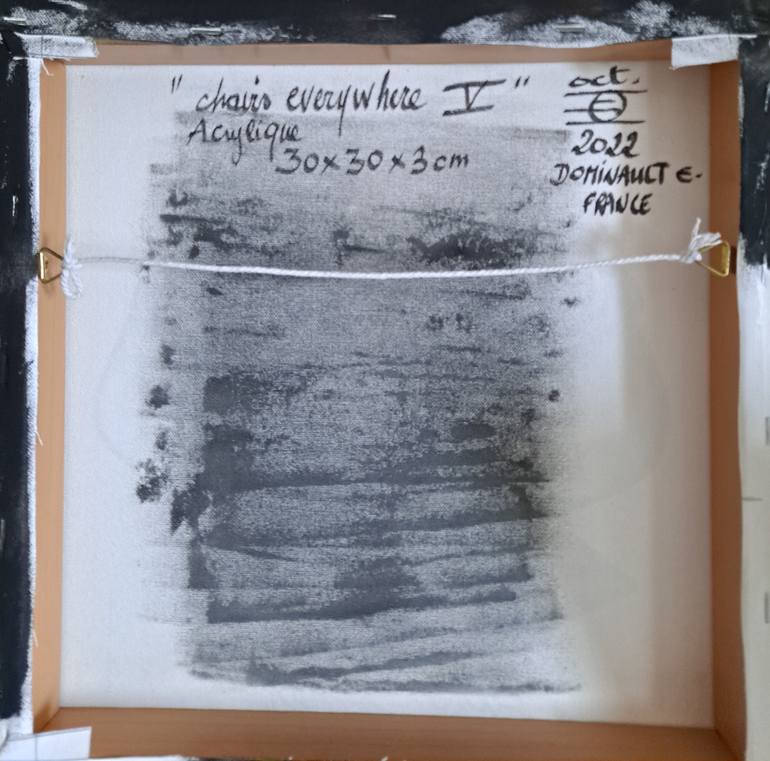 " chairs everywhere V "
Acrylique
30x30x3cm
oct.
2022
DOMINAULT E-
FRANCE